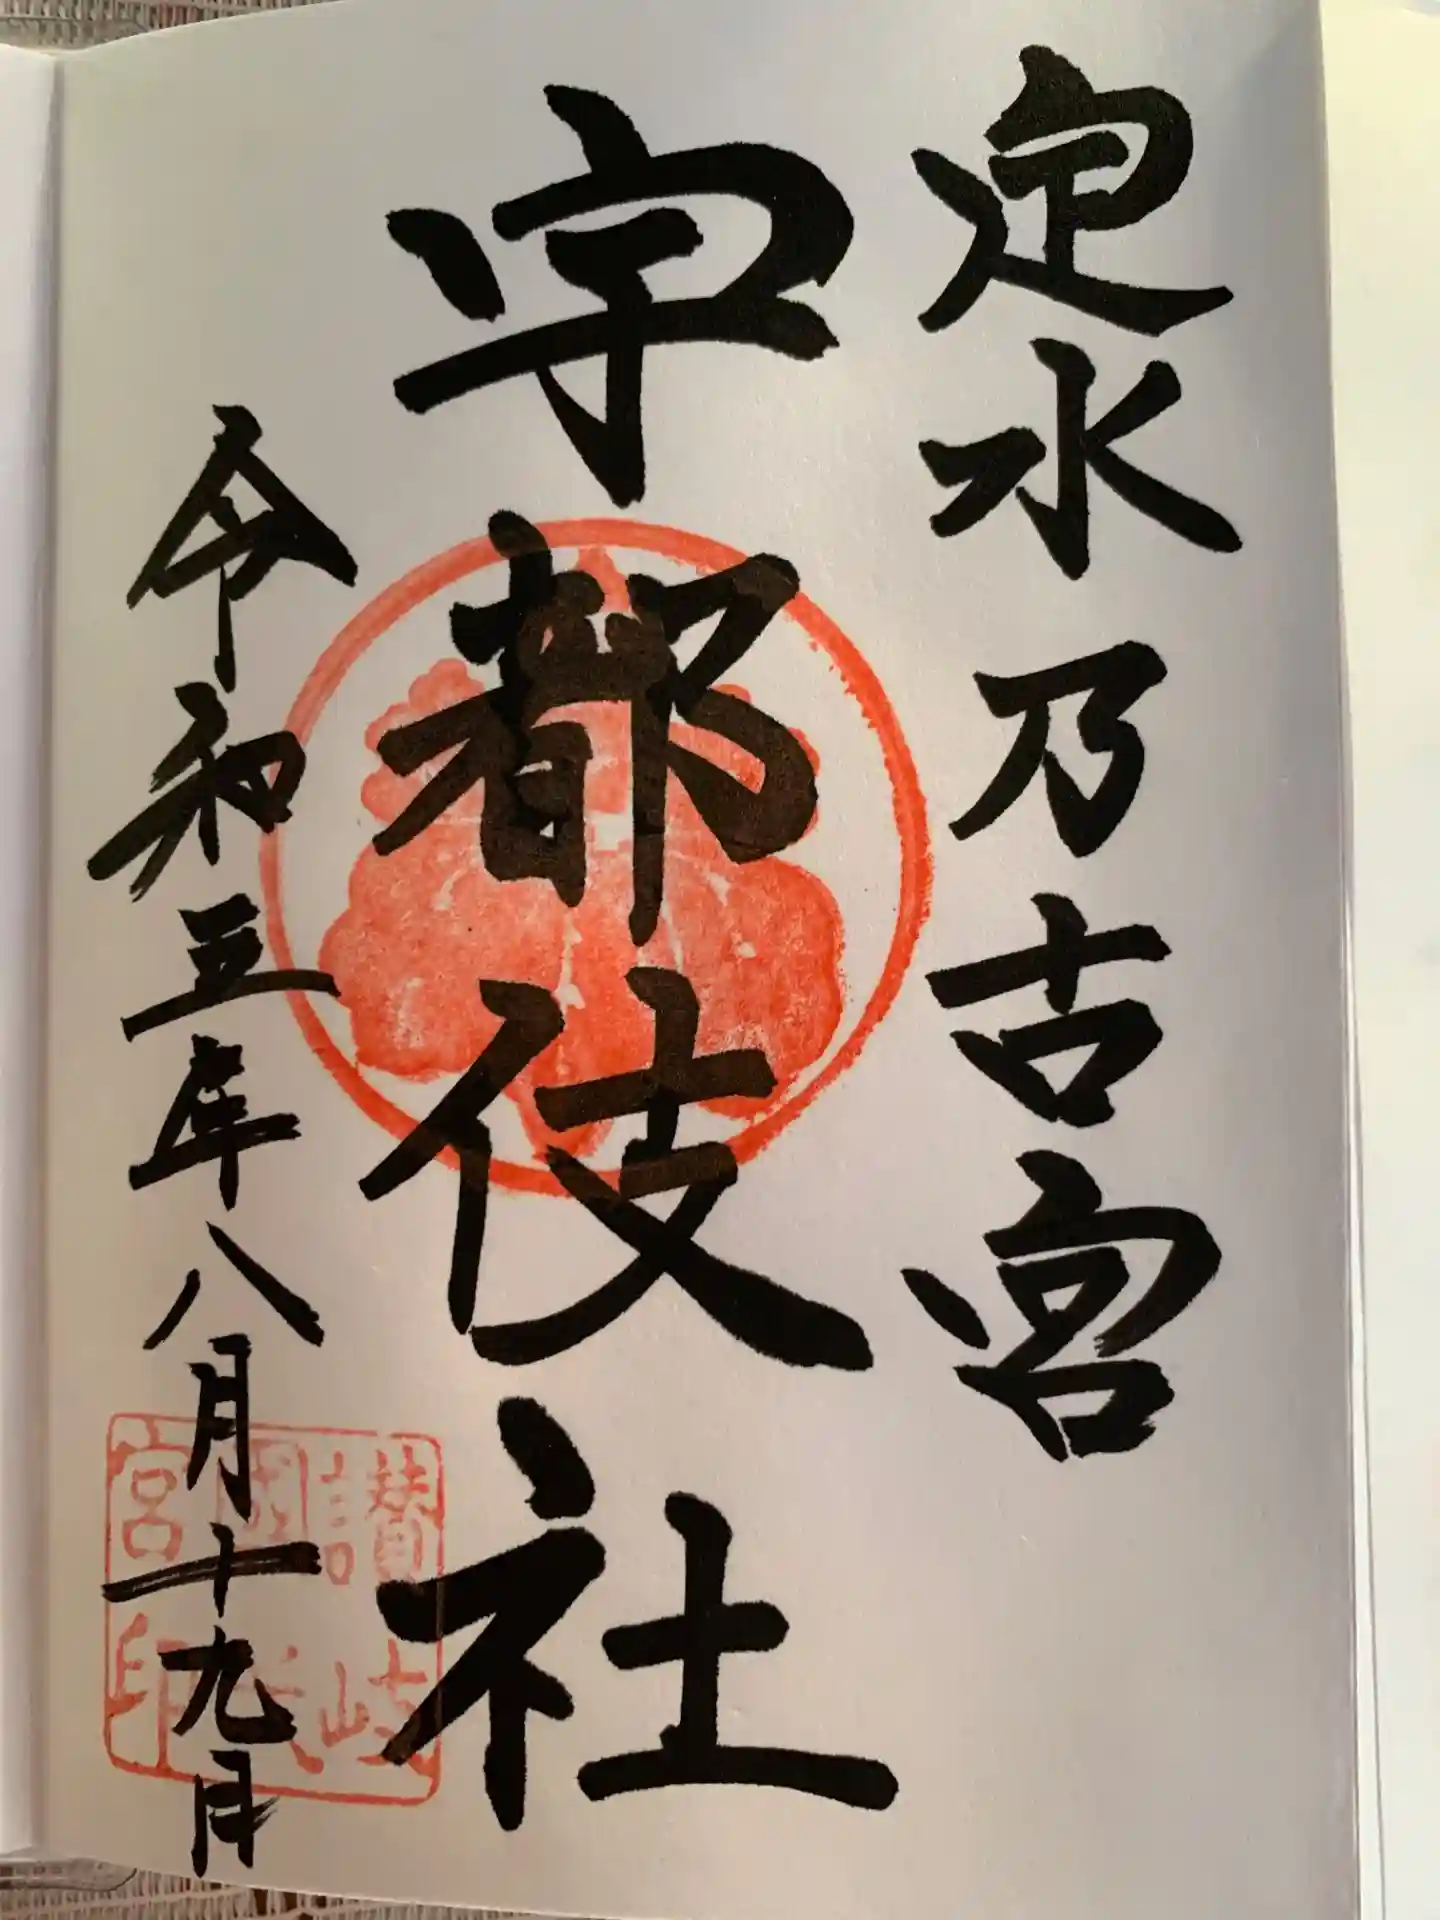 定水乃古宮
宇都伎社
令和五年八月十九日
讃岐
國
宮印